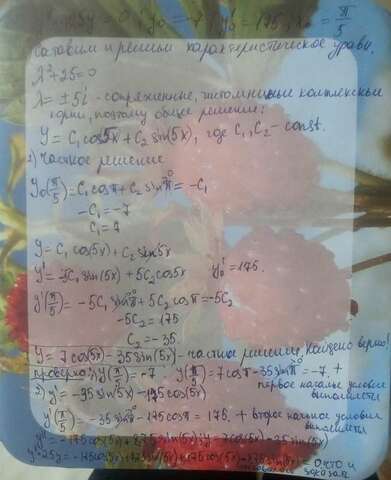 y''+25y = 0, y₀ = -7, y₀' = 175, x₀ = π/5
Составим и решим характеристическое уравн.
λ²+25=0
λ = ± 5i - сопряженные, чисто мнимые комплексные
корни, поэтому общее решение:
y = C₁ cos5x + C₂ sin(5x), где C₁, C₂ - const.
1) Частное решение
y₀(π/5) = C₁ cosπ + C₂ sinπ⁰ = -C₁
-C₁ = -7
C₁ = 7
y = C₁ cos(5x) + C₂ sin5x
y' = -5C₁ sin(5x) + 5C₂ cos5x y₀' = 175.
y'(π/5) = -5C₁ sinπ⁰ + 5C₂ cosπ = -5C₂
-5C₂ = 175
C₂ = -35
y = 7cos(5x) - 35sin(5x) - частное решение, найдено верно!
проверка: 1) y(π/5) = -7 y(π/5) = 7cosπ - 35sinπ⁰ = -7. +
первое начальное условие
выполнено
2) y' = -35sin(5x) - 175cos(5x)
y'(π/5) = -35sinπ⁰ - 175cosπ = 175. + второе начальное условие
выполнено
y'' = -175cos(5x) + 875sin(5x)
0